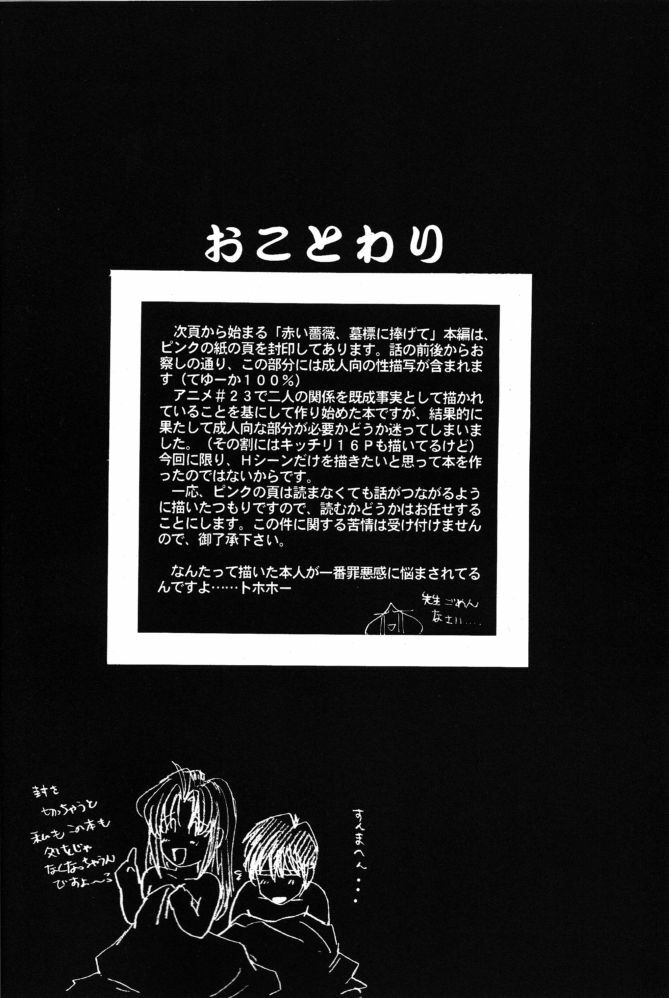 おことわり
次頁から始まる「赤い薔薇、墓標に捧げて」本編は、
ピンクの紙の頁を封印してあります。話の前後からお
察しの通り、この部分には成人向の性描写が含まれま
す（てゆーか１００％）
アニメ＃２３で二人の関係を既成事実として描かれ
ていることを基にして作り始めた本ですが、結果的に
果たして成人向な部分が必要かどうか迷ってしまいい
ました。（その割にはキッチリ１６Ｐも描いてるけど）
今回に限り、Ｈシーンだけを描きたいと思って本を作
ったのではないからです。
一応、ピンクの頁は読まなくても話がつながるよう
に描いたつもりですので、読むかどうかはお任せする
ことにします。この件に関する苦情は受け付けません
ので、御了承下さい。
なんたって描いた本人が一番罪悪感に悩まされてる
んですよ……トホホー
先生ごめん
なさい....
封を
切っちゃうと
私もこの本も
処女じゃ
なくなっちゃうん
ですよ〜ろ
すんまへん・・・